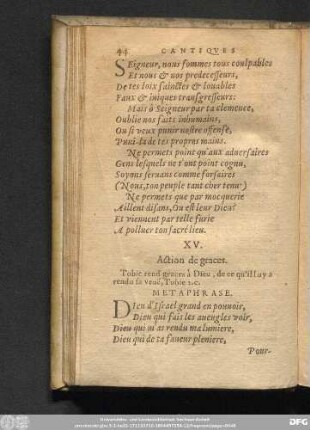 44 CANTIQVES
SEigneur, nous sommes tous coulpables
Et nous & nos predecesseurs,
De tes loix sainctes & louables
Faux & iniques transgresseurs:
Mais ô Seigneur par ta clemence,
Oublie nos faits inhumains,
Ou si veux punir nostre offense,
Puni-la de tes propres mains.
Ne permets point qu'aux aduersaires
Gens lesquels ne t'ont point cognu,
Soyons seruans comme forsaires
(Nous, ton peuple tant cher tenu)
Ne permets que par mocquerie
Aillent disans, Ou est leur Dieu?
Et viennent par telle furie
A polluer ton sacré lieu.
XV.
Action de graces.
Tobie rend graces à Dieu, de ce qu'il luy a
rendu sa veuë, Tobie
METAPHRASE.
DIeu d'Israel grand en pouuoir,
Dieu qui fais les aueugles voir,
Dieu qui m'as rendu ma lumiere,
Dieu qui de ta faueur pleniere,
Pour-
DFG